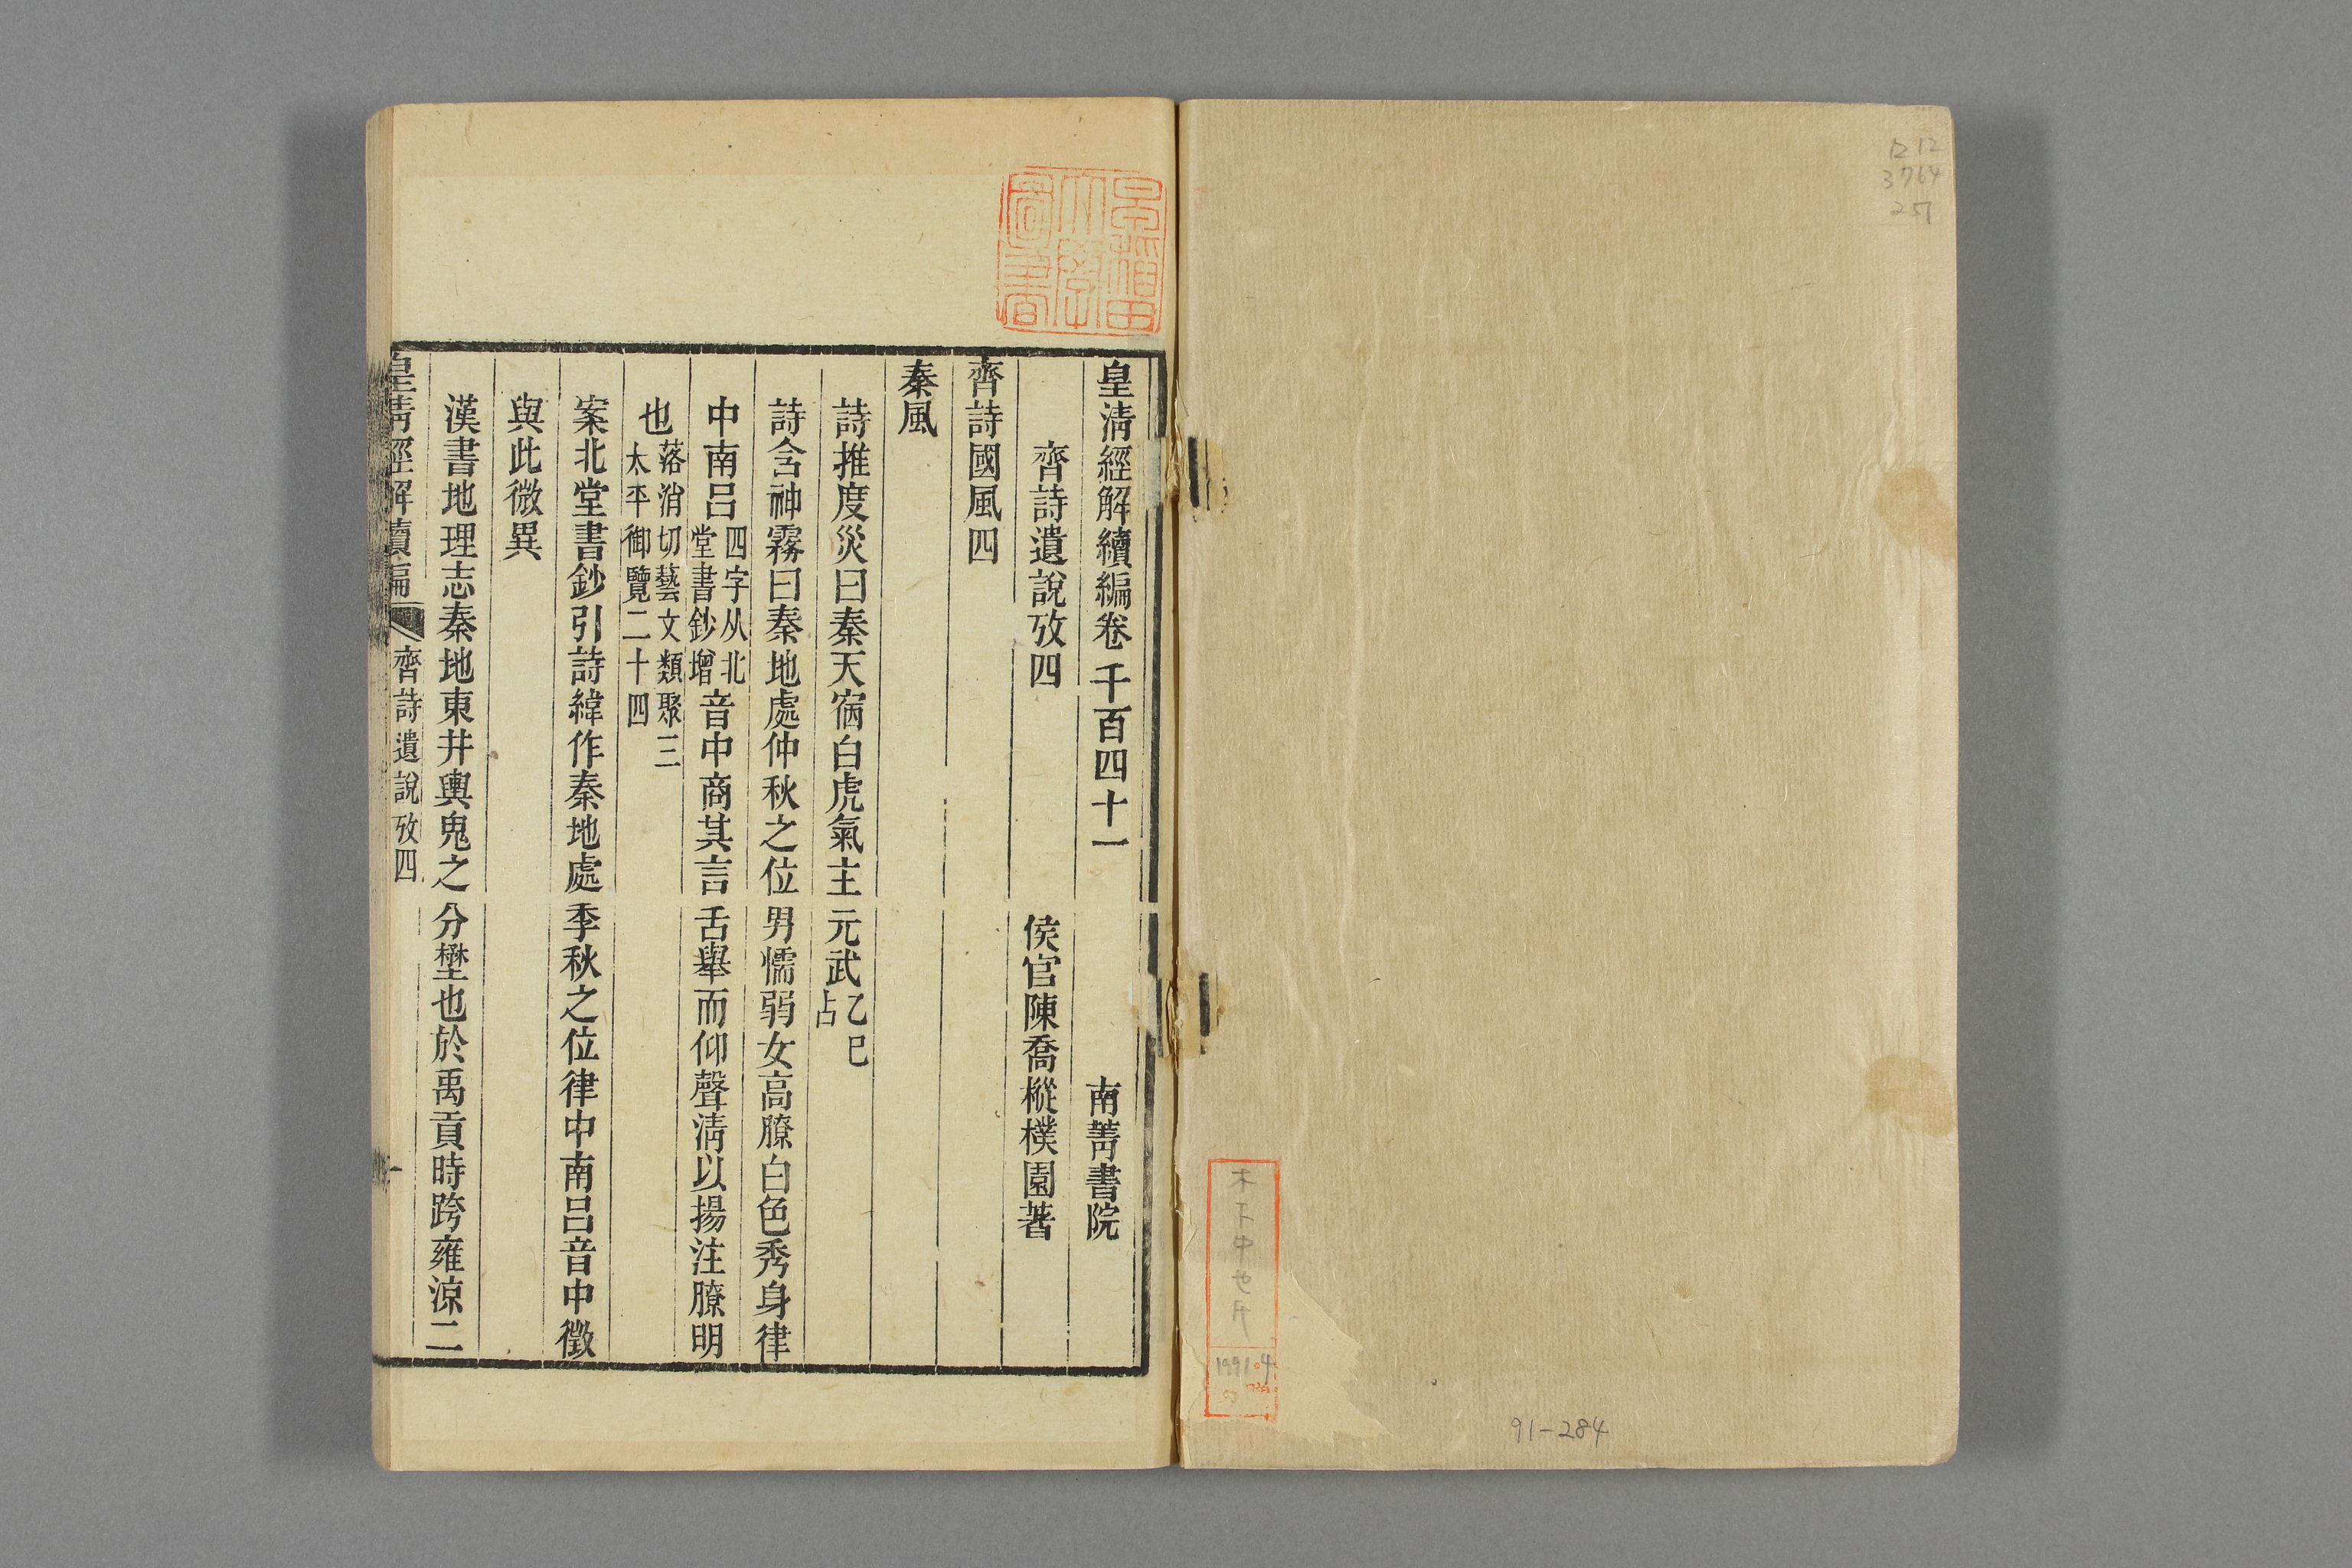 D12
3764
251
木下中也斤
1991.4
91-284
早稲田大學圖書
皇淸經解續編卷千百四十一 南菁書院
齊詩遺說攷四 侯官陳喬樅樸園著
齊詩國風四
秦風
詩推度災曰秦天宿白虎氣主元武乙巳占
詩含神霧曰秦地處仲秋之位男懦弱女高膫白色秀身律
中南呂四字从北堂書鈔增音中商其言舌舉而仰聲淸以揚注膫明
也落消切藝文類聚三太平御覽二十四
案北堂書鈔引詩緯作秦地處季秋之位律中南呂音中徵
與此微異
漢書地理志秦地東井輿鬼之分壄也於禹貢時跨雍涼二
皇淸經解續編 齊詩遺說攷四 一